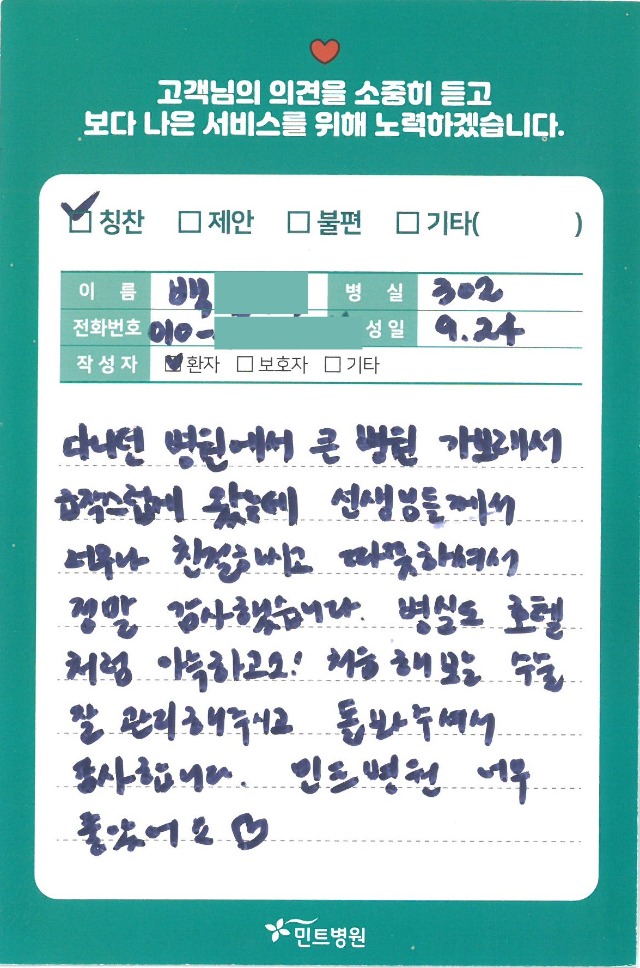 고객님의 의견을 소중히 듣고
보다 나은 서비스를 위해 노력하겠습니다.
칭찬 제안 불편 기타( )
이 름 백 병 실 302
전화번호 010- 성일 9.24
작성자 환자 보호자 기타
다니던 병원에서 큰 병원 가보래서
갑작스럽게 왔는데 선생님들께서
너무나 친절하시고 따뜻하셔서
정말 감사했습니다. 병실도 호텔
처럼 아늑하고요! 처음 해보는 수술
잘 관리해주시고 돌봐주셔서
감사합니다. 민트병원 너무
좋았어요 ♡
민트병원